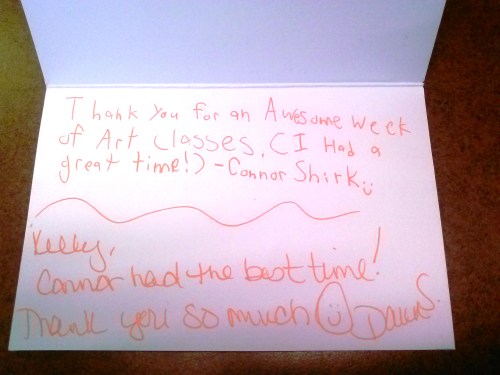 Thank you for an Awesome week
of Art classes, (I Had a
great time!) -Connor Shirk
Kelly,
Connor had the best time!
Thank you so much Dawn S.